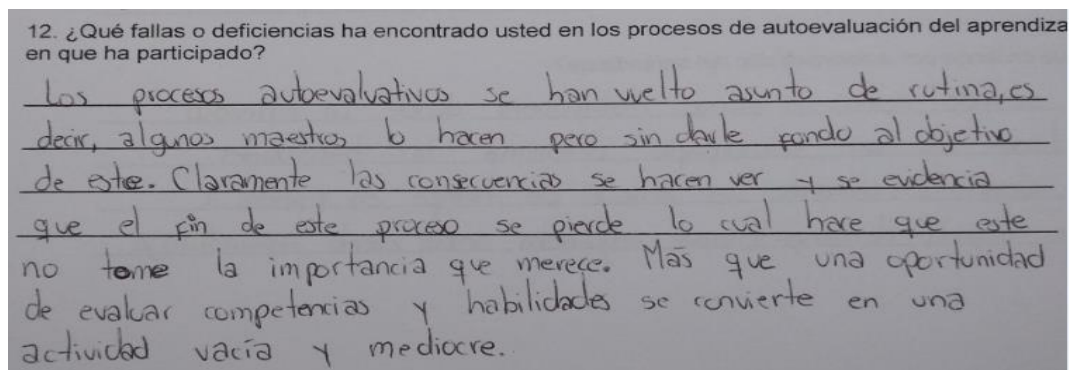 12. ¿Qué fallas o deficiencias ha encontrado usted en los procesos de autoevaluación del aprendiza
en que ha participado?
Los procesos autoevaluativos se han vuelto asunto de rutina, es
decir, algunos maestros lo hacen pero sin darle fondo al objetivo
de este. Claramente las consecuencias se hacen ver y se evidencia
que el fin de este proceso se pierde lo cual hace que este
no tome la importancia que merece. Más que una oportunidad
de evaluar competencias y habilidades se convierte en una
actividad vacía y mediocre.